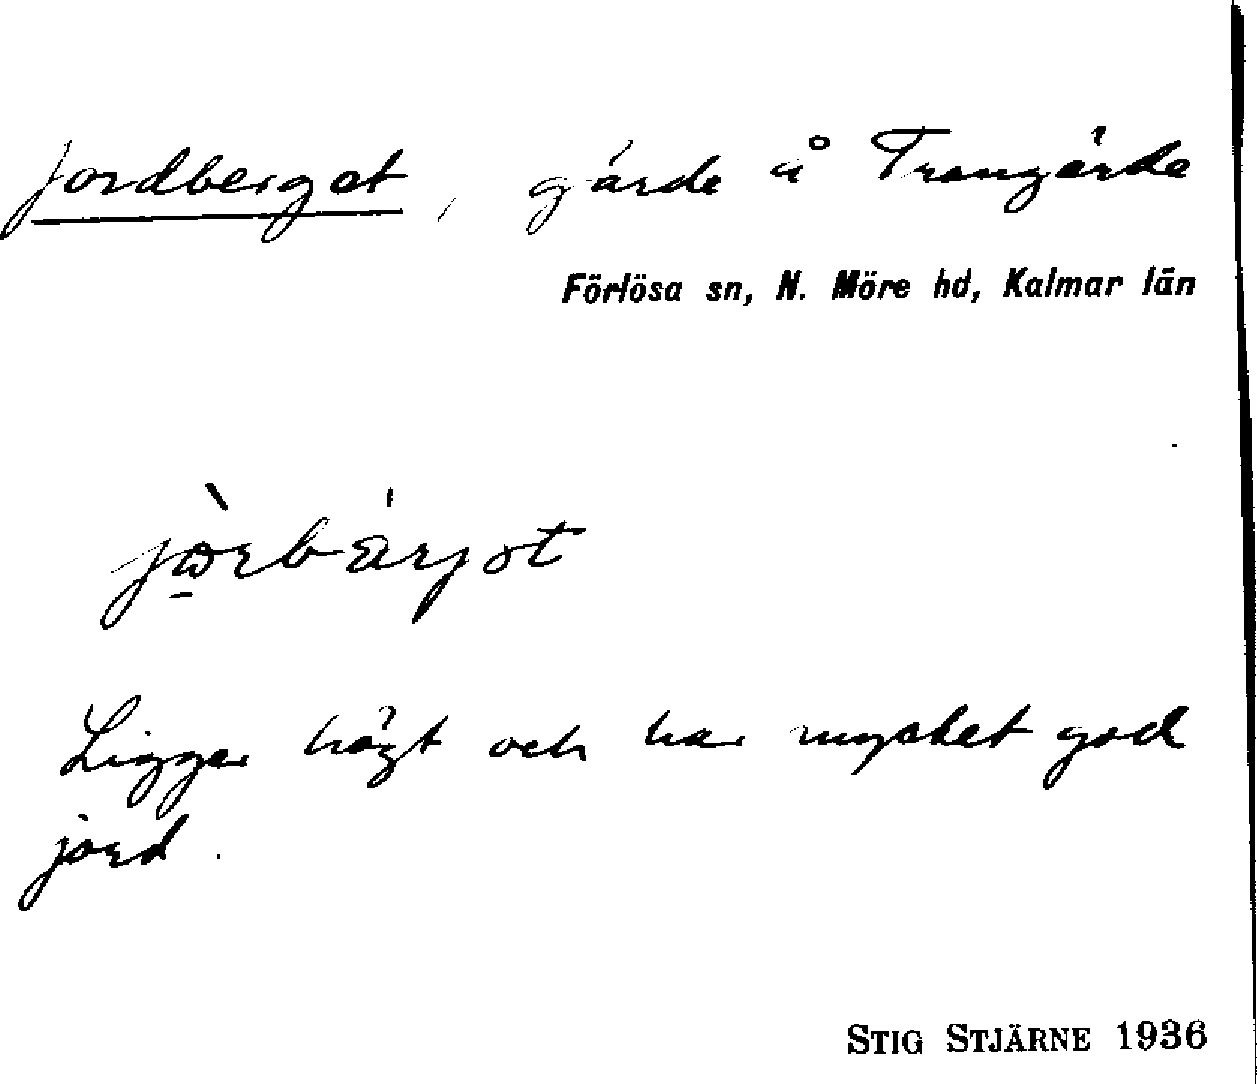 Jordberget, gärde å Trangärde
Förlösa sn, N. Möre hd, Kalmar län
Ligger högt och har mycket god
jord.
STIG STJÄRNE 1936